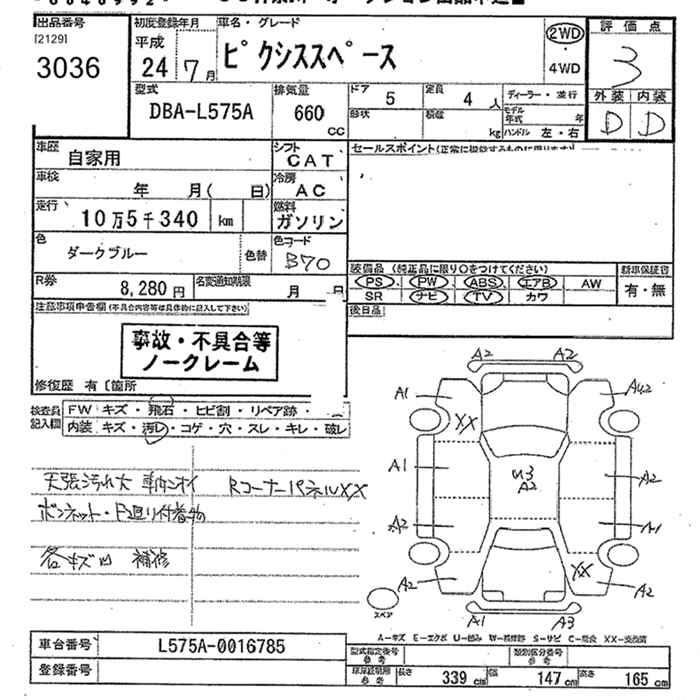 出品番号
[2129]
3036
初度登録年月
平成
24 7月
車名・グレード
ピクシススペース
2WD
4WD
評価点
3
外装 内装
D D
型式
DBA-L575A
排気量
660
CC
ドア
5
定員
4 人
ディーラー・並行
形状
積載
kg
モデル年式 年
ハンドル 左・右
車歴
自家用
シフト
CAT
セールスポイント(正常に機能するものに限ります)
車検
年 月( 日)
冷房
AC
走行
10万5千340 km
燃料
ガソリン
色
ダークブルー
色替
色コード
B70
R券
8,280円
名変通知期限
月 日
装備品 (純正品に限り○をつけてください)
PS PW ABS エアB AW
SR ナビ TV カワ
新車保証書
有・無
後日品
注意事項申告欄(不具合内容等は具体的に記入して下さい)
事故・不具合等
ノークレーム
修復歴 有〔箇所
検査員
記入欄
FW キズ・飛石・ヒビ割・リペア跡・
内装 キズ・汚レ・コゲ・穴・スレ・キレ・破レ
天張汚れ大 車内ニオイ Rコーナーパネルxx
付着物
各キズ凹 補修
A2 A2
A1 A4.2
XX
A1 U3 A2 A2
A2 A1
XX
A2 A2
スペア
A1 A3
A-キズ E-エクボ U-凹み W-補修跡 S-サビ C-腐食 XX-交換済
車台番号
L575A-0016785
登録番号
型式指定番号
参考
類別区分番号
参考
参考
長さ 339 cm
幅 147 cm
高さ 165 cm